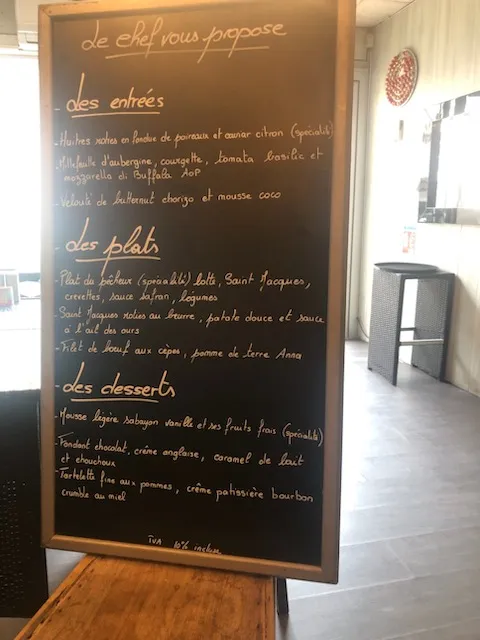 Le chef vous propose
Les entrées
- Huîtres roties en fondue de poireaux et caviar citron (spécialité)
- Millefeuille d'aubergine, courgette, tomata basilic et
mozzarella di Buffala AOP
- Velouté de butternut chorizo et mousse coco
- Les plats
- Plat du pêcheur (spécialité) lotte, Saint Jacques,
crevettes, sauce safran, légumes
- Saint Jacques roties au beurre, patate douce et sauce
à l'ail des ours
- Filet de bœuf aux cèpes, pomme de terre Anna
- Les desserts
- Mousse légère sabayon vanille et ses fruits frais (spécialité)
- Fondant chocolat, crème anglaise, caramel de lait
et chouchoux
- Tartelette fine aux pommes, crème patissière bourbon
crumble au miel
TVA 10% incluse